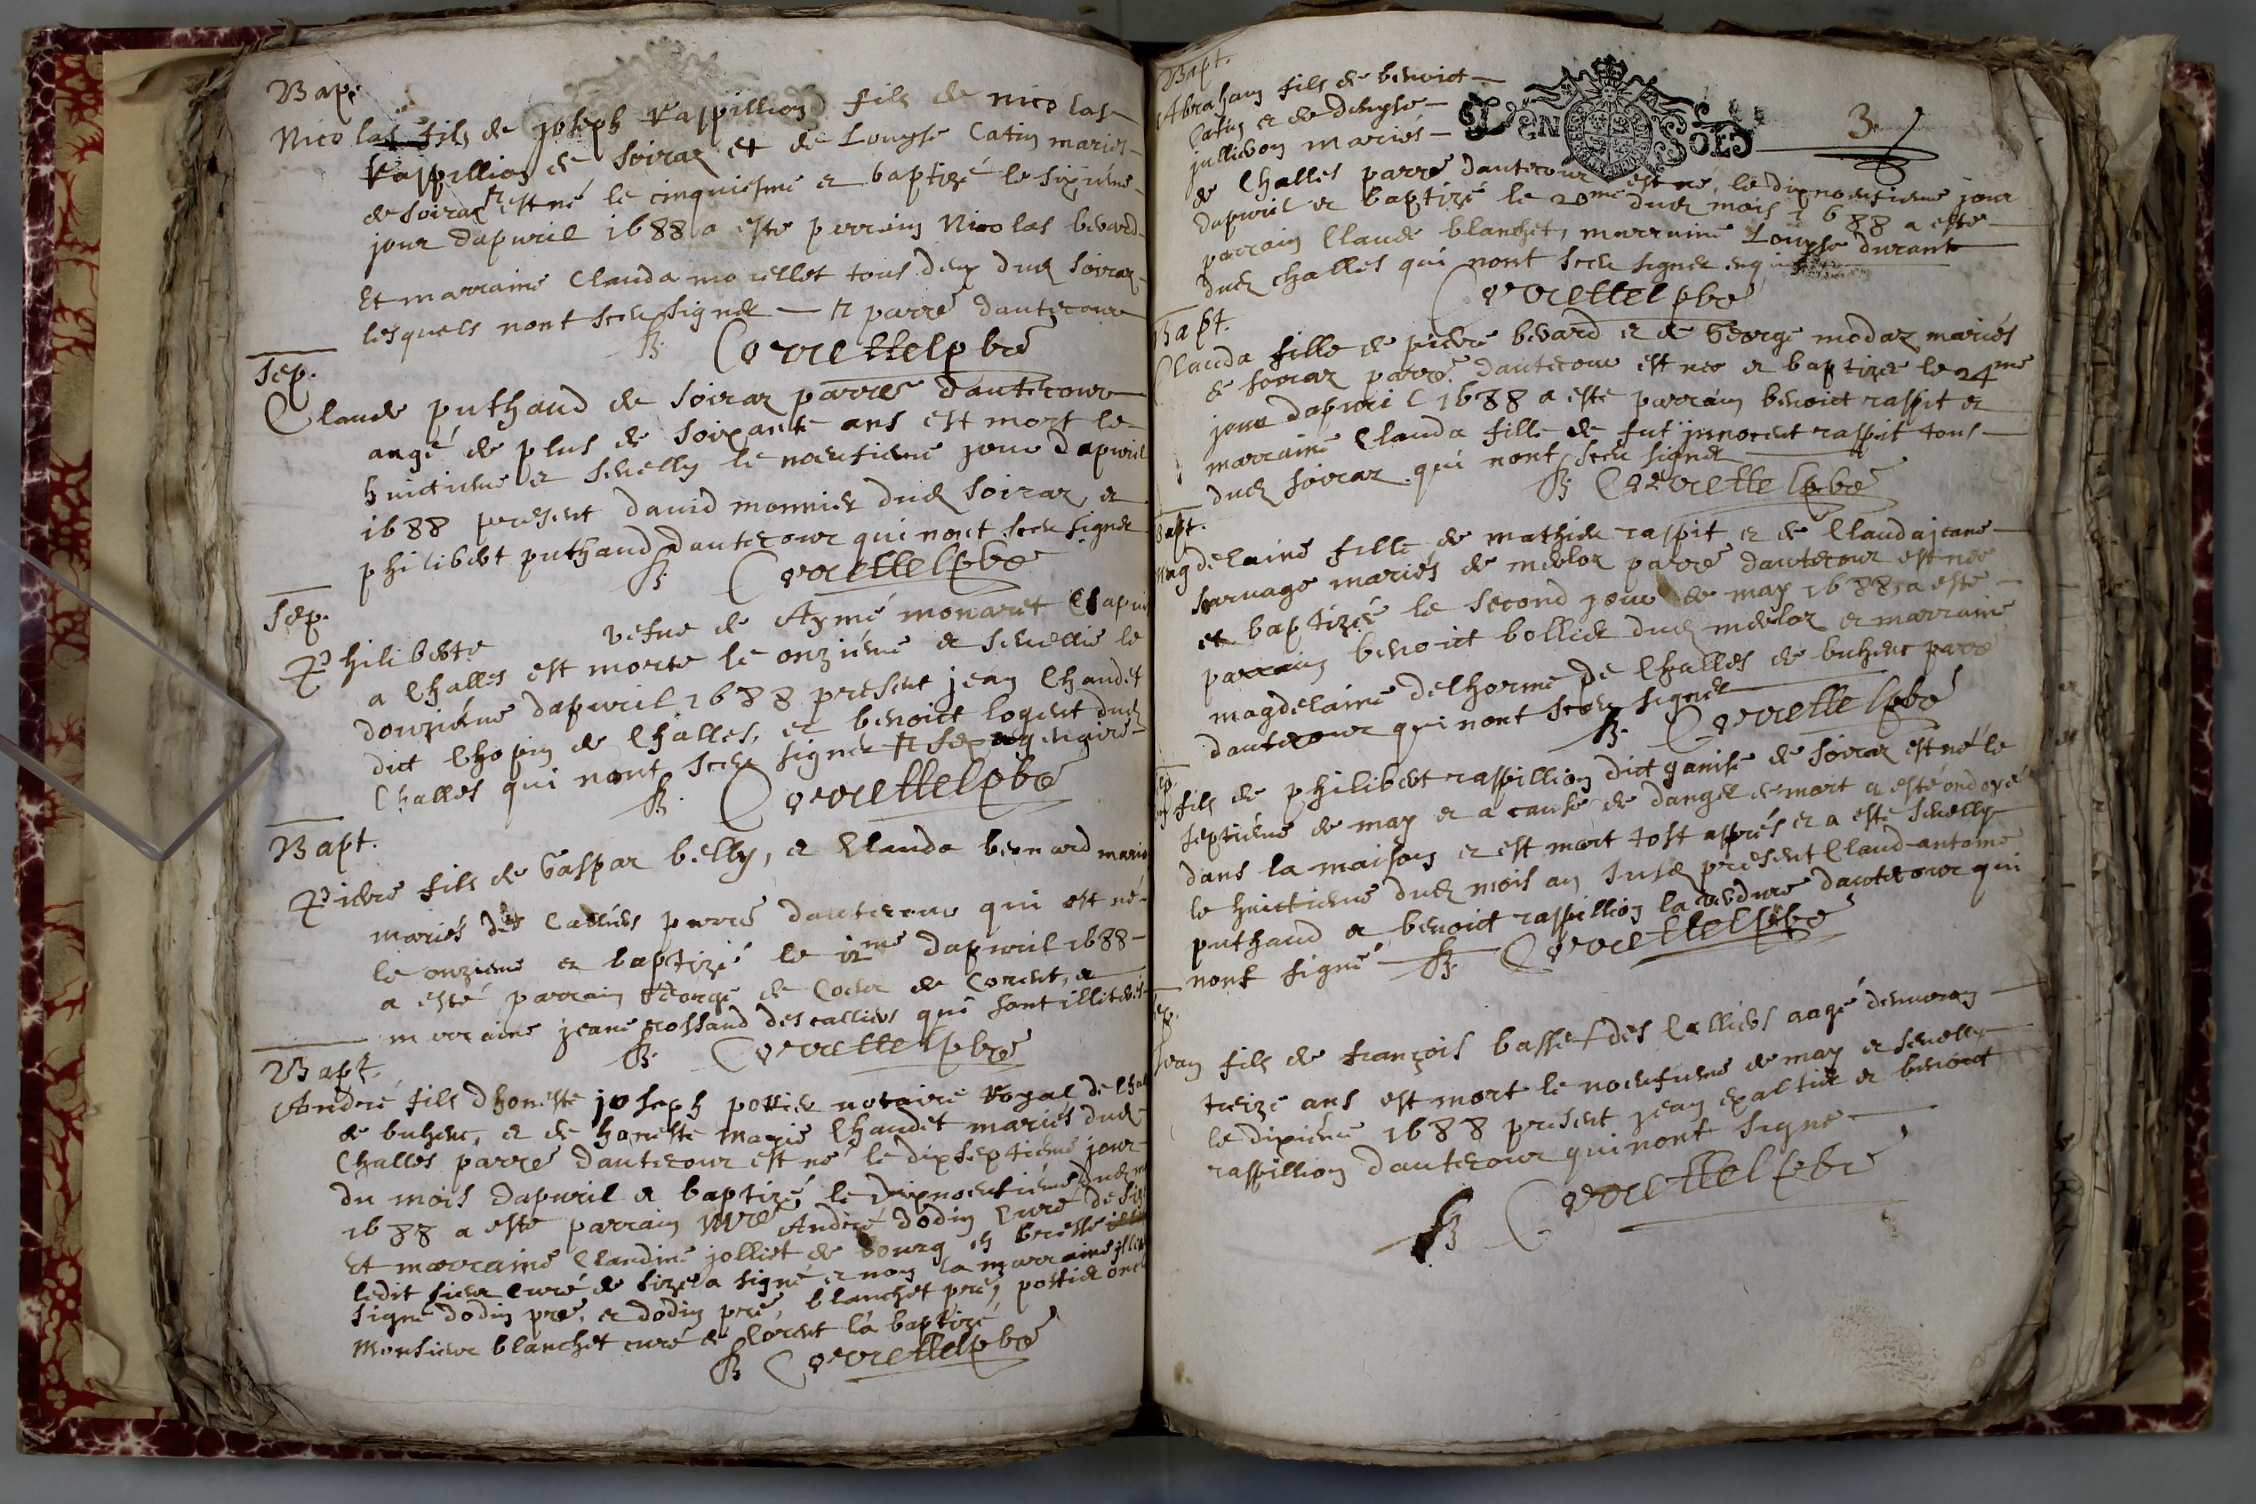 Bapt.
Nicolas fils de joseph Raspillion fils de nicolas
Raspillion de soiraz et de Louyse Catin mariés
de soiraz # est né le cinquiesme et baptizé le sixiéme
jour dapuril 1688 a este perrain Nicolas beuard
Et marraine Clauda morellet tous deux dud soiraz
lesquels nont sceu signer — # parre dautecour
Correttel pbre
Sep.
Claude puthaud de soiraz parre dautecour
angé de plus de soixante ans est mort le
huictieme et seuelly le noeufieme jour dapuril
1688 present dauid monnier dud soiraz et
philibert puthaud dautecour qui nont sceu signer
Correttel pbre
Sep.
Philiberte vefue de Aymé monaret
a Challes est morte le onziéme et seuelie le
douziéme dapuril 1688 present jean Chaudet
dict Chopin de Challes, et benoict logent dud
Challes qui nont sceu signer #
Correttel pbre
Bapt.
Pierre fils de Gaspar belly, et Clauda bernard
mariés des Calliers parre dautecour qui est né
le onzieme et baptizé le 12me dapuril 1688
a esté parrain George de Coeur de Corent, et
marraine jeane grossaud des calliers qui sont
Correttel pbre
Bapt.
André fils dhoneste joseph pottier notaire Royal de
de buhenc, et de honeste marie Chaudet mariés dud
Challes parre dautecour est né le dixseptieme jour
du mois dapuril et baptizé le dixnoeufiéme dud
1688 a este parrain mre André dodin Curé de
Et marraine Claudine jolliet de bourg en bresse
ledit sieur curé de sizeea signé et non la marraine
signé dodin pre, et dodin pre, blanchet pre, pottier
Monsieur blanchet curé de Corent la baptizé
Correttel pbre
Bapt.
Abraham fils de benoict
Catin et de denyse
jullieuon mariés
DEN SOLS
3
de Challes parre dautecour est né le dixnoeufieme jour
dapuril et baptizé le 20me dud mois 1688 a este
parrain Claude blanchet, marraine Louyse durant
dud challes qui nont sceu signer
Correttel pbre
Bapt.
Clauda fille de pierre beuard et de George modaz mariés
de soiraz parre dautecour est nee et baptizee le 24me
jour dapuril 1688 a este parrain benoict raspit et
marraine Clauda fille de fut jnnocent raspit tous
dud soiraz qui nont sceu signer
Correttel pbre
Bapt.
Magdelaine fille de mathieu raspit et de Claudajeane
saruage mariés de merloz parre dautecour est nee
et baptizée le second jour de may 1688, a este
parrain benoict bollier dud merloz et marraine
magdelaine delhorme de Challes de buhenc parre
dautecour qui nont sceu signer
Correttel pbre
fils de philibert raspillion dict ganise de soiraz est né le
septieme de may et a cause de danger de mort a esté ondoyé
dans la maison et est mort tost apprés et a este seuelly
le huictieme dud mois an susd present Claud antoine
puthaud et benoict raspillion laverdure dautecour qui
nont signé
Correttel pbre
Jean fils de françois basset des Calliers aagé denuiron
treize ans est mort le noeufieme de may et seuelly
le dixiéme 1688 present jean exaltier et benoict
raspillion dautecour qui nont signe
Correttel pbre